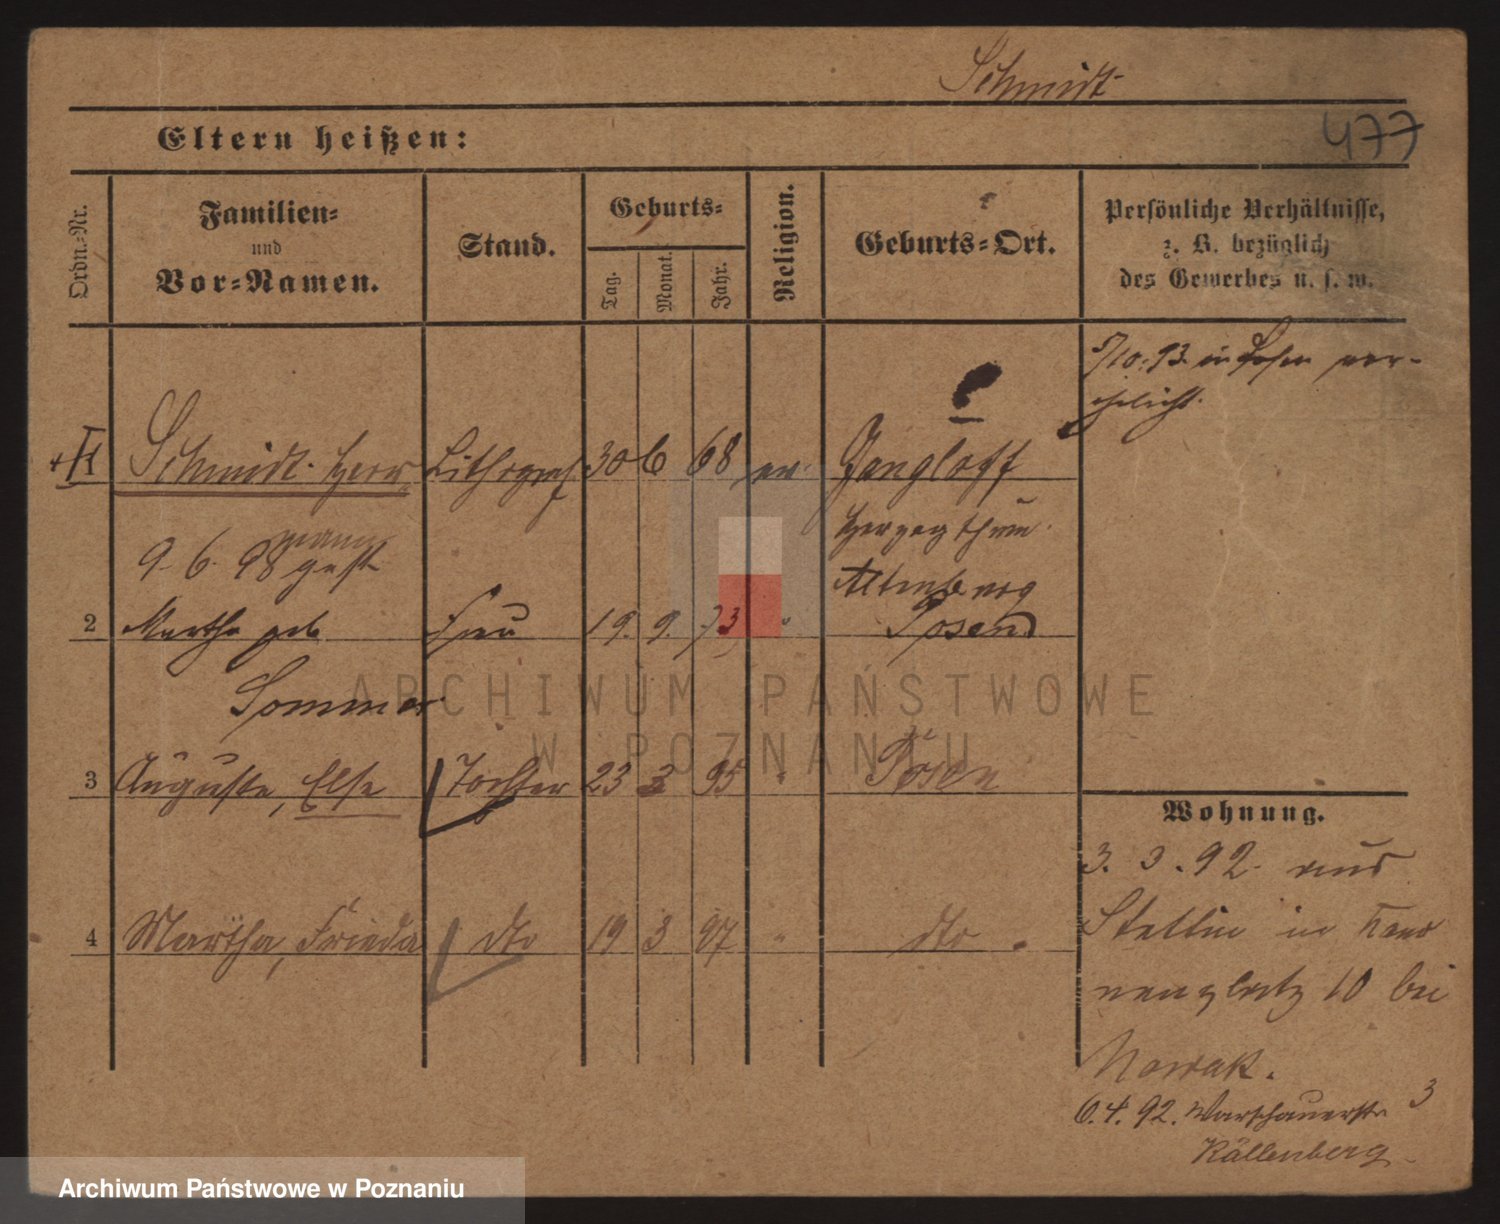 Schmidt
Eltern heißen:
477
Ordn.-Nr.
Familien-
und
Vor-Namen.
Stand.
Geburts-
Tag.
Monat.
Jahr.
Religion.
Geburts-Ort.
Persönliche Verhältnisse,
z. B. bezüglich
des Gewerbes u. s. w.
5/10.93. in Posen ver-
ehelicht.
Schmidt Herr- Lithograf 30 6 68 ev. Gangloff
mann
9. 6. 98 gest
Herzogthum
Altenburg
2 Martha geb Frau 19. 9. 73 " Posen
Sommer
3 Auguste, Else Tochter 23 3 95 " Posen
4 Martha, Frieda dto 19 3 97 " dto
Wohnung.
3. 3. 92. aus
Stettin in
10 bei
Nowak.
6.4.92. Warschauerstr 3
Källenberg
ARCHIWUM PAŃSTWOWE
W POZNANIU
Archiwum Państwowe w Poznaniu